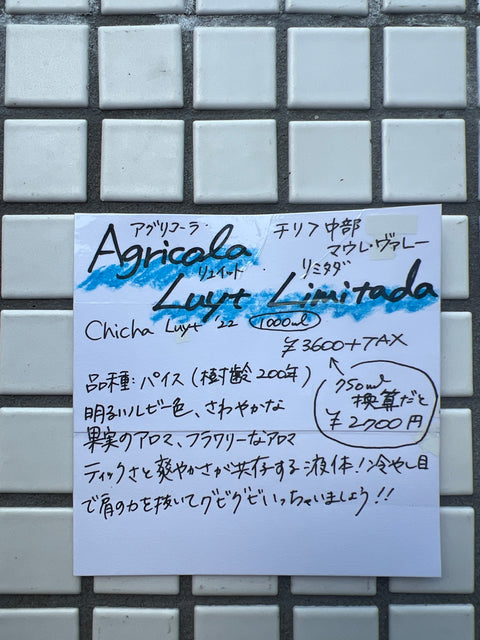 アグリコーラ
Agricola
チリ 中部
マウレ・ヴァレー
リュイット
リミタダ
Luyt Limitada
Chicha Luyt '22 1000ml
¥3600+TAX
750ml
換算だと
¥2700円
品種:パイス(樹齢200年)
明るいルビー色、さわやかな
果実のアロマ、フラワリーなアロマ
ティックさと爽やかさが共存する液体!冷やし目
で肩の力を抜いてグビグビいっちゃいましょう!!